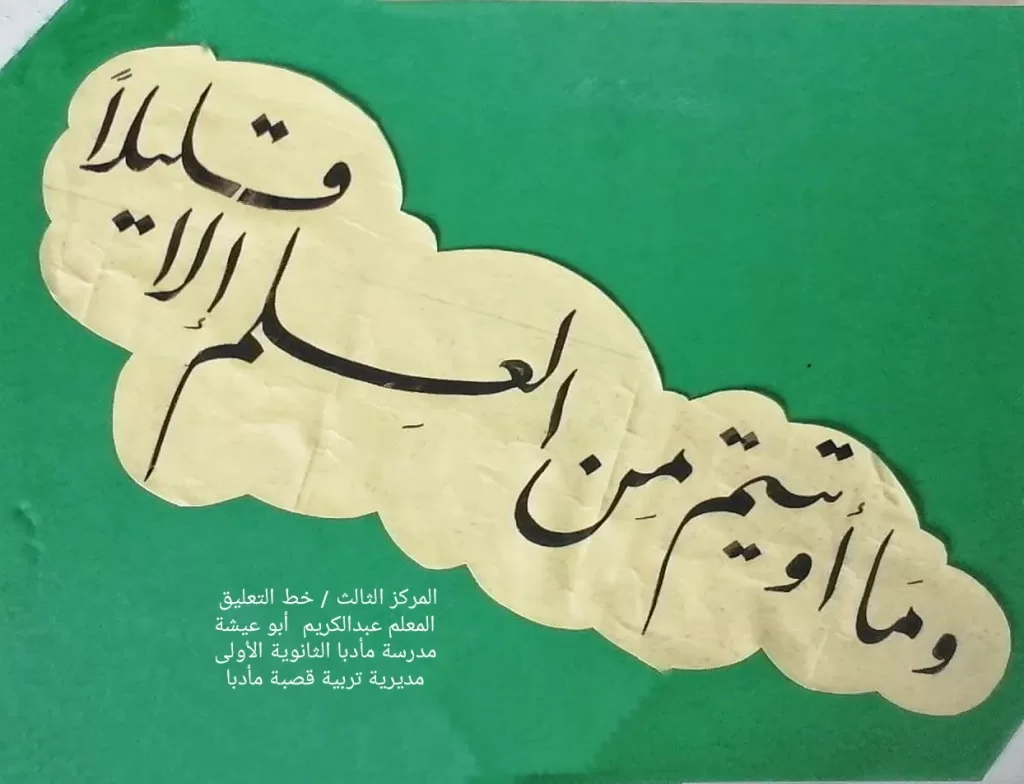 وَمَا أُوتيتم مِن العِلم إلا قليلاً
المركز الثالث / خط التعليق
المعلم عبدالكريم أبو عيشة
مدرسة مأدبا الثانوية الأولى
مديرية تربية قصبة مأدبا